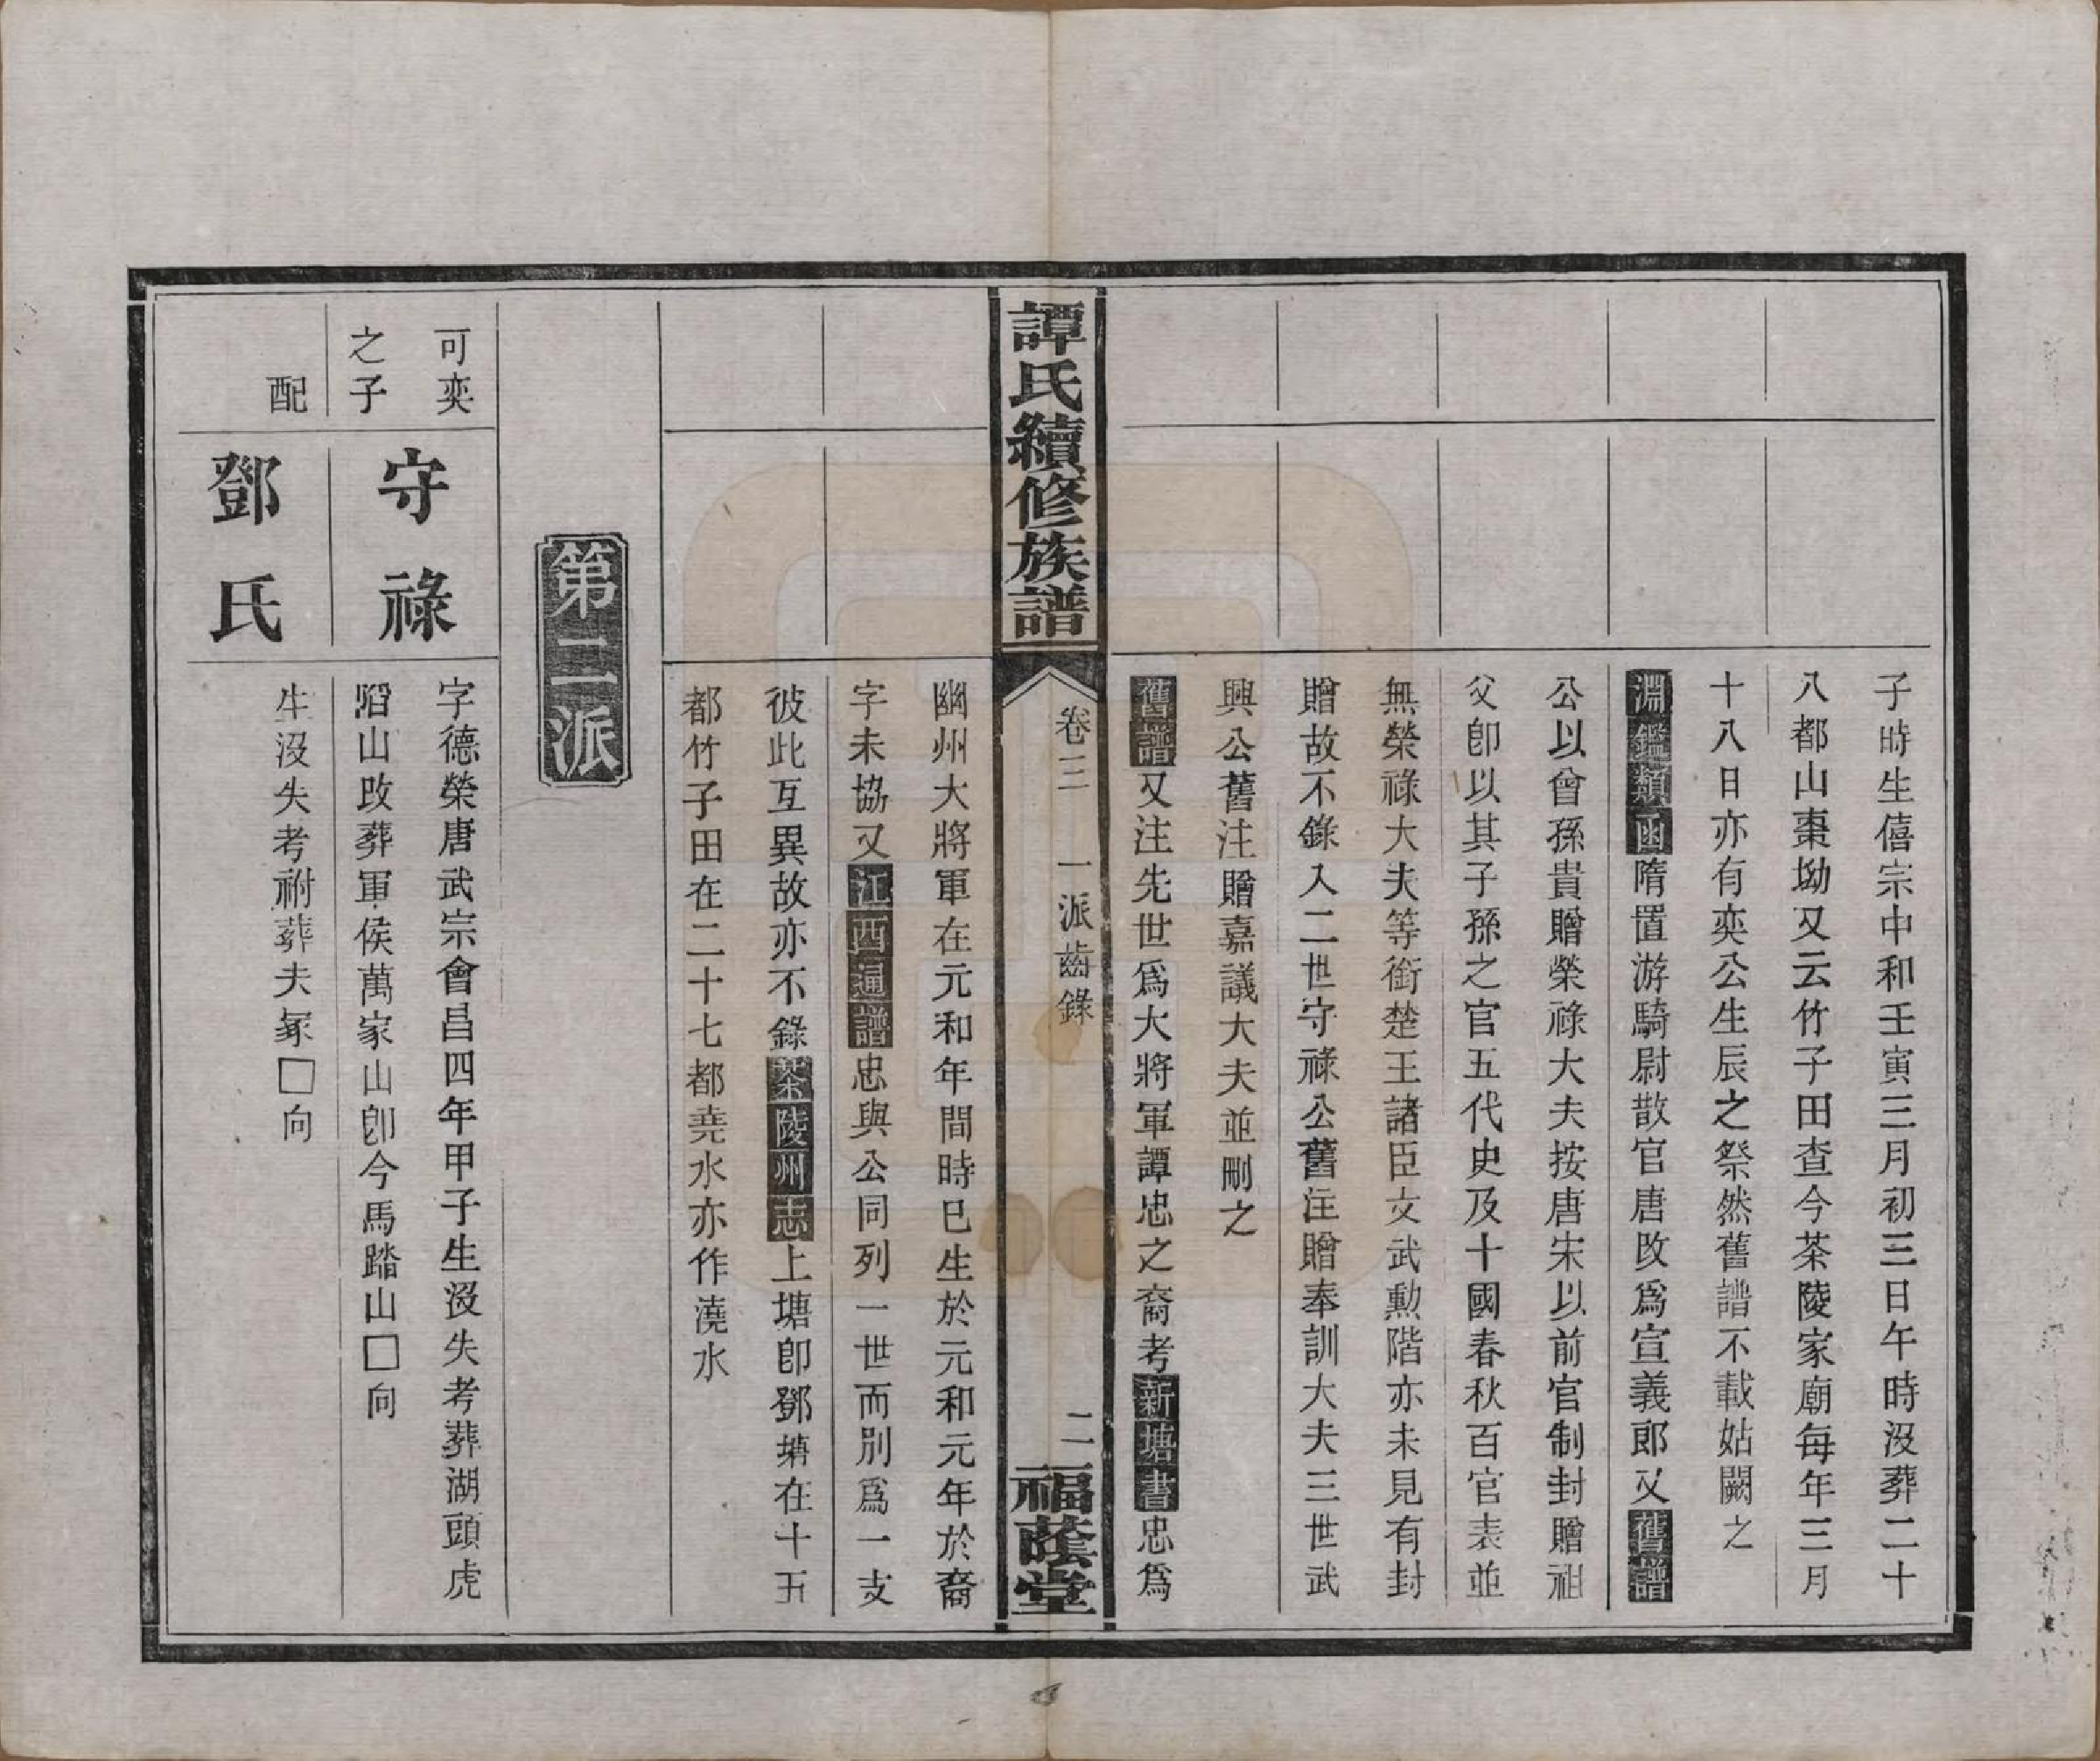 子時生僖宗中和壬寅三月初三日午時沒葬二十
八都山棗坳又云竹子田查今茶陵家廟每年三月
十八日亦有奕公生辰之祭然舊譜不載姑闕之
淵鑑類函隋置游騎尉散官唐改爲宣義郎又舊譜
公以曾孫貴贈榮祿大夫按唐宋以前官制封贈祖
父卽以其子孫之官五代史及十國春秋百官表並
無榮祿大夫等銜楚王諸臣文武勳階亦未見有封
贈故不錄入二世守祿公舊注贈奉訓大夫三世武
興公舊注贈嘉議大夫並刪之
舊譜又注先世爲大將軍譚忠之裔考新塘書忠爲
譚氏續修族譜
卷三 一派齒錄
二
福蔭堂
幽州大將軍在元和年間時已生於元和元年於裔
字未協又江西通譜忠與公同列一世而別爲一支
彼此互異故亦不錄茶陵州志上塘卽鄧塘在十五
都竹子田在二十七都堯水亦作澆水
第二派
可奕
之子
守祿
字德榮唐武宗會昌四年甲子生沒失考葬湖頭虎
蹈山改葬軍侯萬家山卽今馬踏山□向
配
鄧氏
生沒失考祔葬夫冢□向